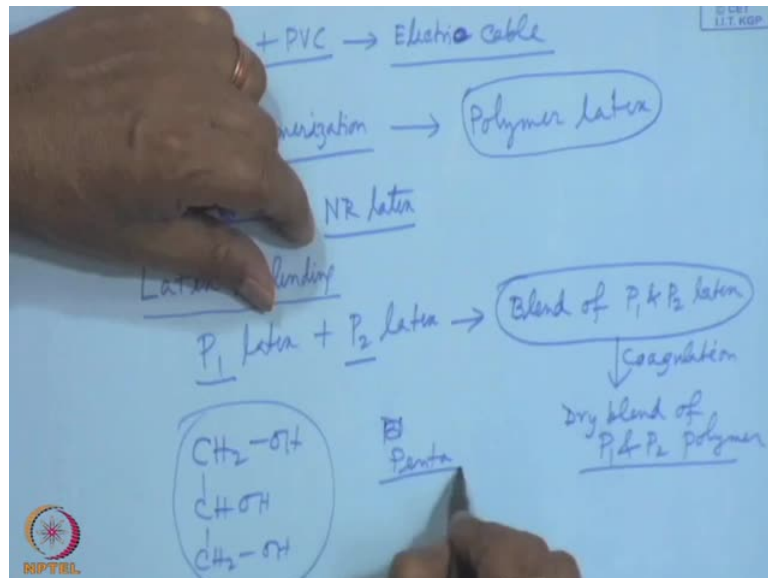 © CET
I.I.T. KGP
+ PVC → Electric Cable
merization → Polymer latex
NR latex
Latex lending
P₁ latex + P₂ latex → Blend of P₁ & P₂ latex
↓ Coagulation
Dry blend of
P₁ & P₂ polymer
CH₂-OH
|
CHOH
|
CH₂-OH
Penta
NPTEL